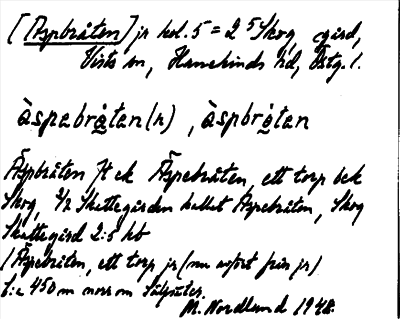 [Aspbråten] jr kol. 5 = 2⁵ Skog, gård,
Vists sn, Hanekinds hd, Östg. l.
àspabrå̀tan(n), àspbrå̀tan
Äspbråten Jt ek Äspebråten, ett torp bek
Skog, 1/2 Skattegården kallat Äspebråten, Skog
Skattegård 2:5 hb
/ Äspebråten, ett torp jr (nu avfört från jr)
c:a 450 m norr om Sätfäter.
M. Nordlund 1948.